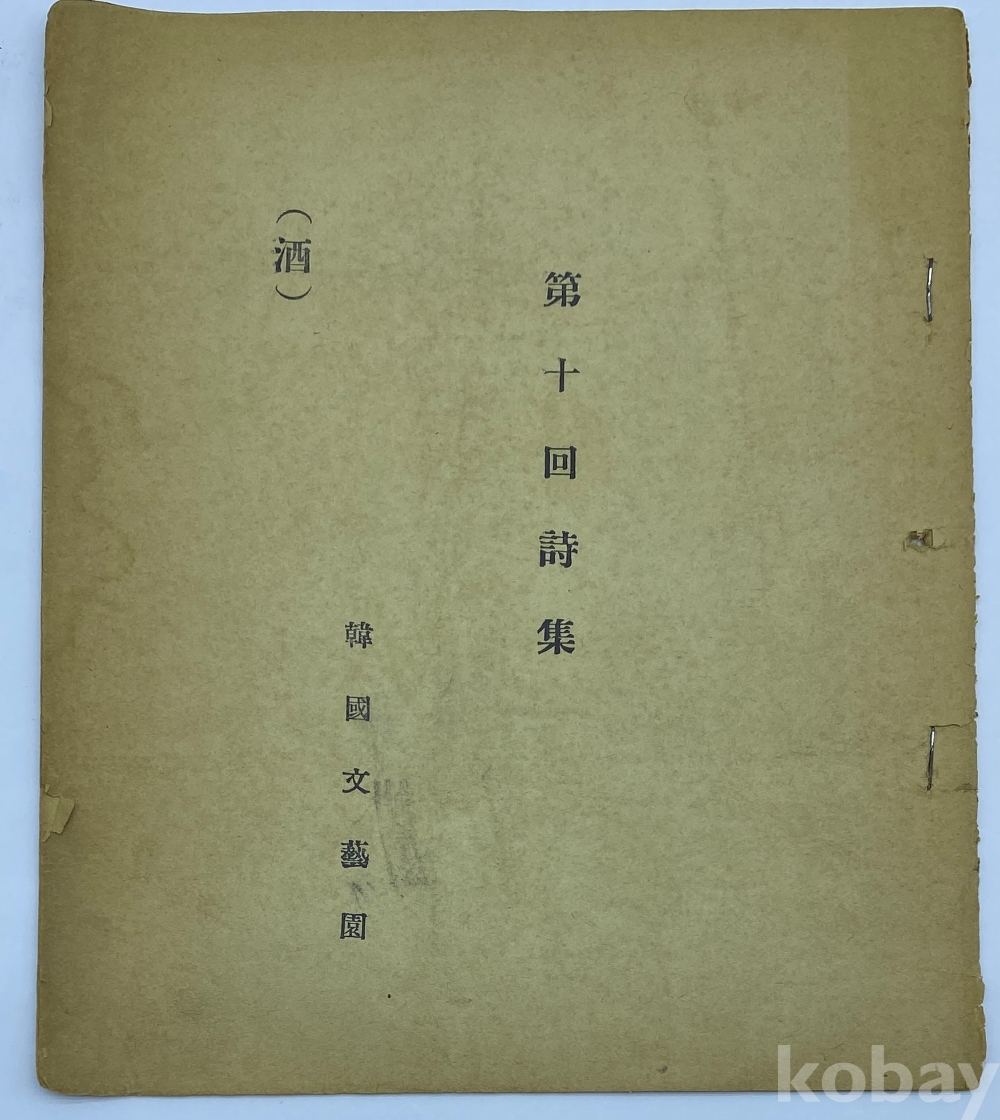 第十回詩集
韓國文藝園
(酒)
kobay